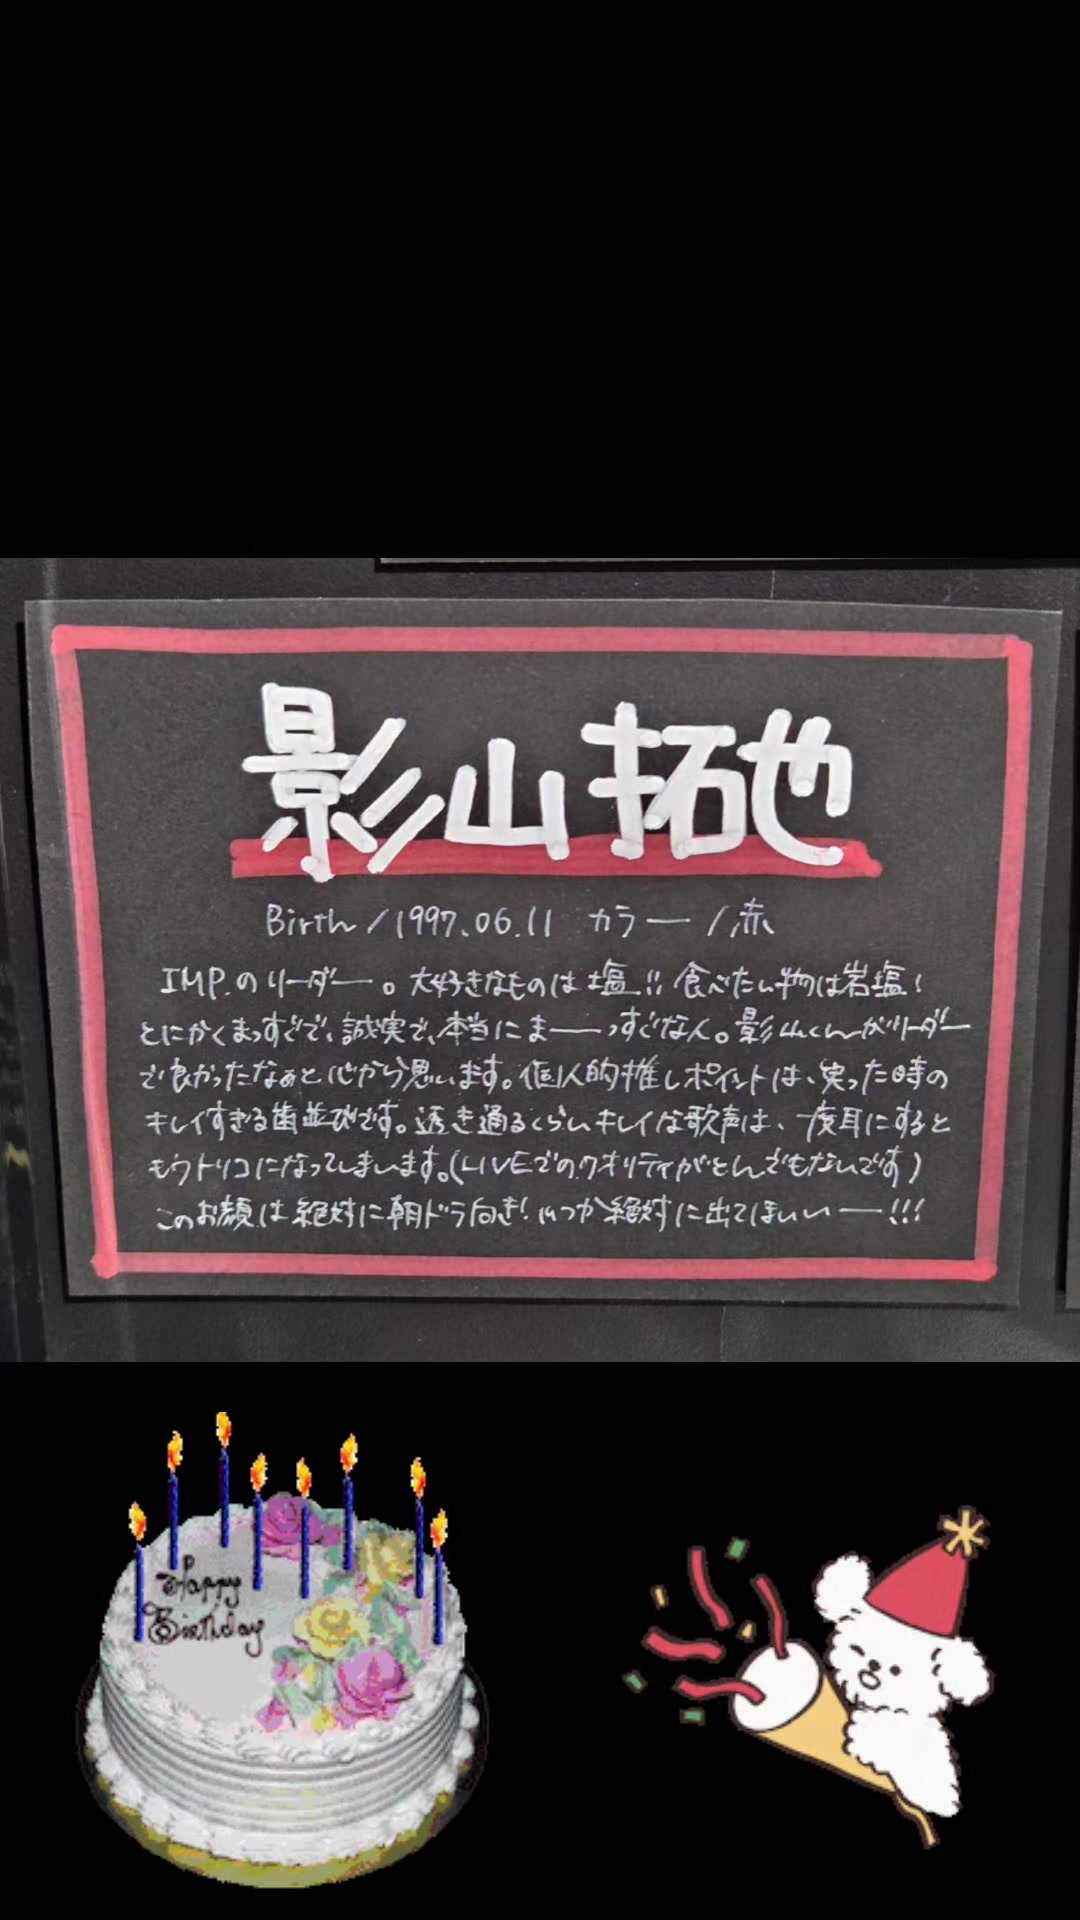 影山拓也
Birth/1997.06.11 カラー/赤
IMP.のリーダー。大好きなものは塩!!食べたい物は岩塩!
とにかくまっすぐで、誠実で、本当にまーーっすぐな人。影山くんがリーダー
で良かったなぁと心から思います。個人的推しポイントは、笑った時の
キレイすぎる歯並びです。透き通るくらいキレイな歌声は、一度耳にすると
もうトリコになってしまいます。(LIVEでのクオリティがとんでもないです)
このお顔は絶対に朝ドラ向き!いつか絶対に出てほしいーー!!!
Happy
Birthday